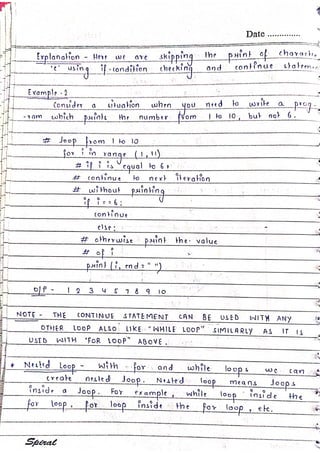 Date ..............
Explanation - Here we are skipping the print of charact
'e' using if-condition checking and continue statem
Example-2
Consider a situation when you need to write a prog-
-ram which prints the number from 1 to 10, but not 6.
# loop from 1 to 10
for i in range (1, 11)
# if i is equal to 6,
# continue to next iteration
# without printing
if i == 6:
continue
else:
# otherwise print the value
# of i
print (i, end = " ")
O/P - 1 2 3 4 5 7 8 9 10
NOTE - THE CONTINUE STATEMENT CAN BE USED WITH ANY
OTHER LOOP ALSO LIKE "WHILE LOOP" SIMILARLY AS IT IS
USED WITH "FOR LOOP" ABOVE.
* Nested Loop - With for and while loops we can
create nested loop. Nested loop means loops
inside a loop. For example, while loop inside the
for loop, for loop inside the for loop, etc.
Spiral